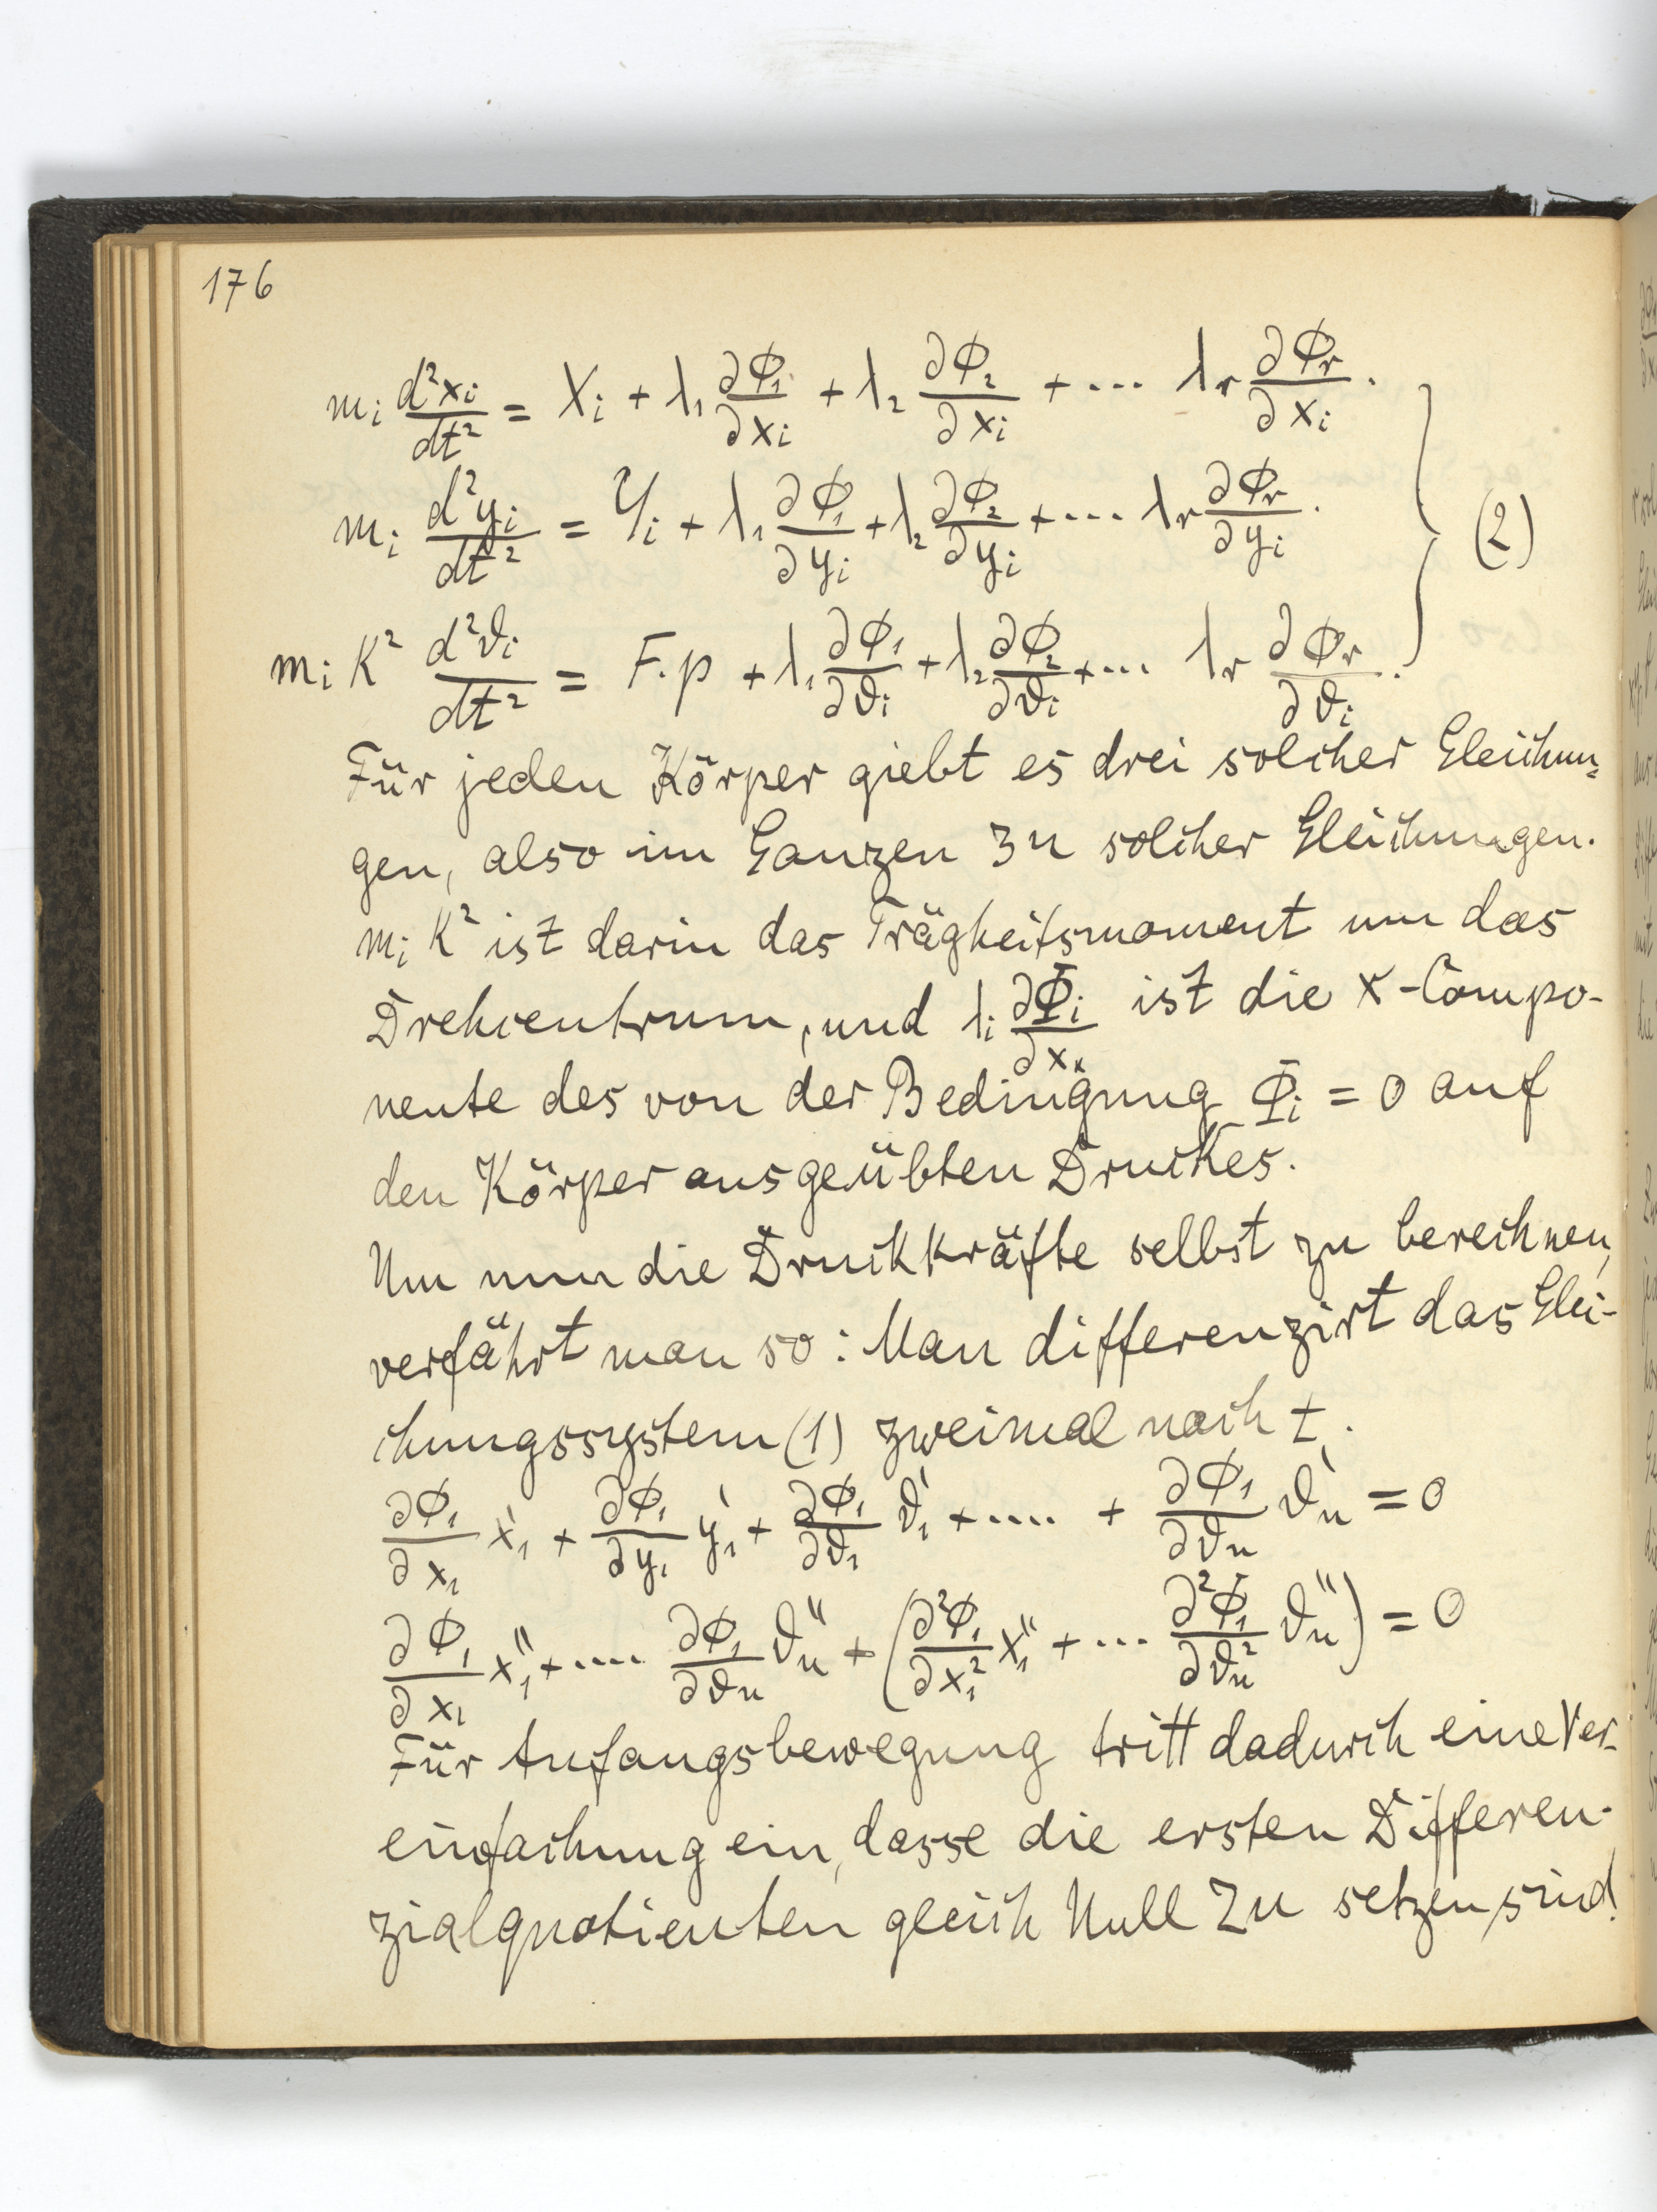 176
m_i d²x_i/dt² = X_i + λ_1 ∂Φ_1/∂x_i + λ_2 ∂Φ_2/∂x_i + ... λ_r ∂Φ_r/∂x_i .
m_i d²y_i/dt² = Y_i + λ_1 ∂Φ_1/∂y_i + λ_2 ∂Φ_2/∂y_i + .... λ_r ∂Φ_r/∂y_i . } (2)
m_i K² d²ϑ_i/dt² = F.p + λ_1 ∂Φ_1/∂ϑ_i + λ_2 ∂Φ_2/∂ϑ_i + ... λ_r ∂Φ_r/∂ϑ_i .
Für jeden Körper giebt es drei solcher Gleichun=
gen, also im Ganzen 3n solcher Gleichungen.
m_i K² ist darin das Trägheitsmoment um das
Drehcentrum, und λ_i ∂Φ_i/∂x_k ist die x-Compo-
nente des von der Bedingung Φ_i = 0 auf
den Körper ausgeübten Druckes.
Um nun die Druckkräfte selbst zu berechnen,
verfährt man so: Man differenzirt das Glei-
chungssystem (1) zweimal nach t.
∂Φ_1/∂x_1 x_1' + ∂Φ_1/∂y_1 y_1' + ∂Φ_1/∂ϑ_1 ϑ_1' + .... + ∂Φ_1/∂ϑ_n ϑ_n' = 0
∂Φ_1/∂x_1 x_1'' + .... ∂Φ_1/∂ϑ_n ϑ_n'' + (∂²Φ_1/∂x_1² x_1'' + ... ∂²Φ_1/∂ϑ_n² ϑ_n'') = 0
Für Anfangsbewegung tritt dadurch eine Ver-
einfachung ein, dasse die ersten Differen-
zialquotienten gleich Null zu setzen sind!